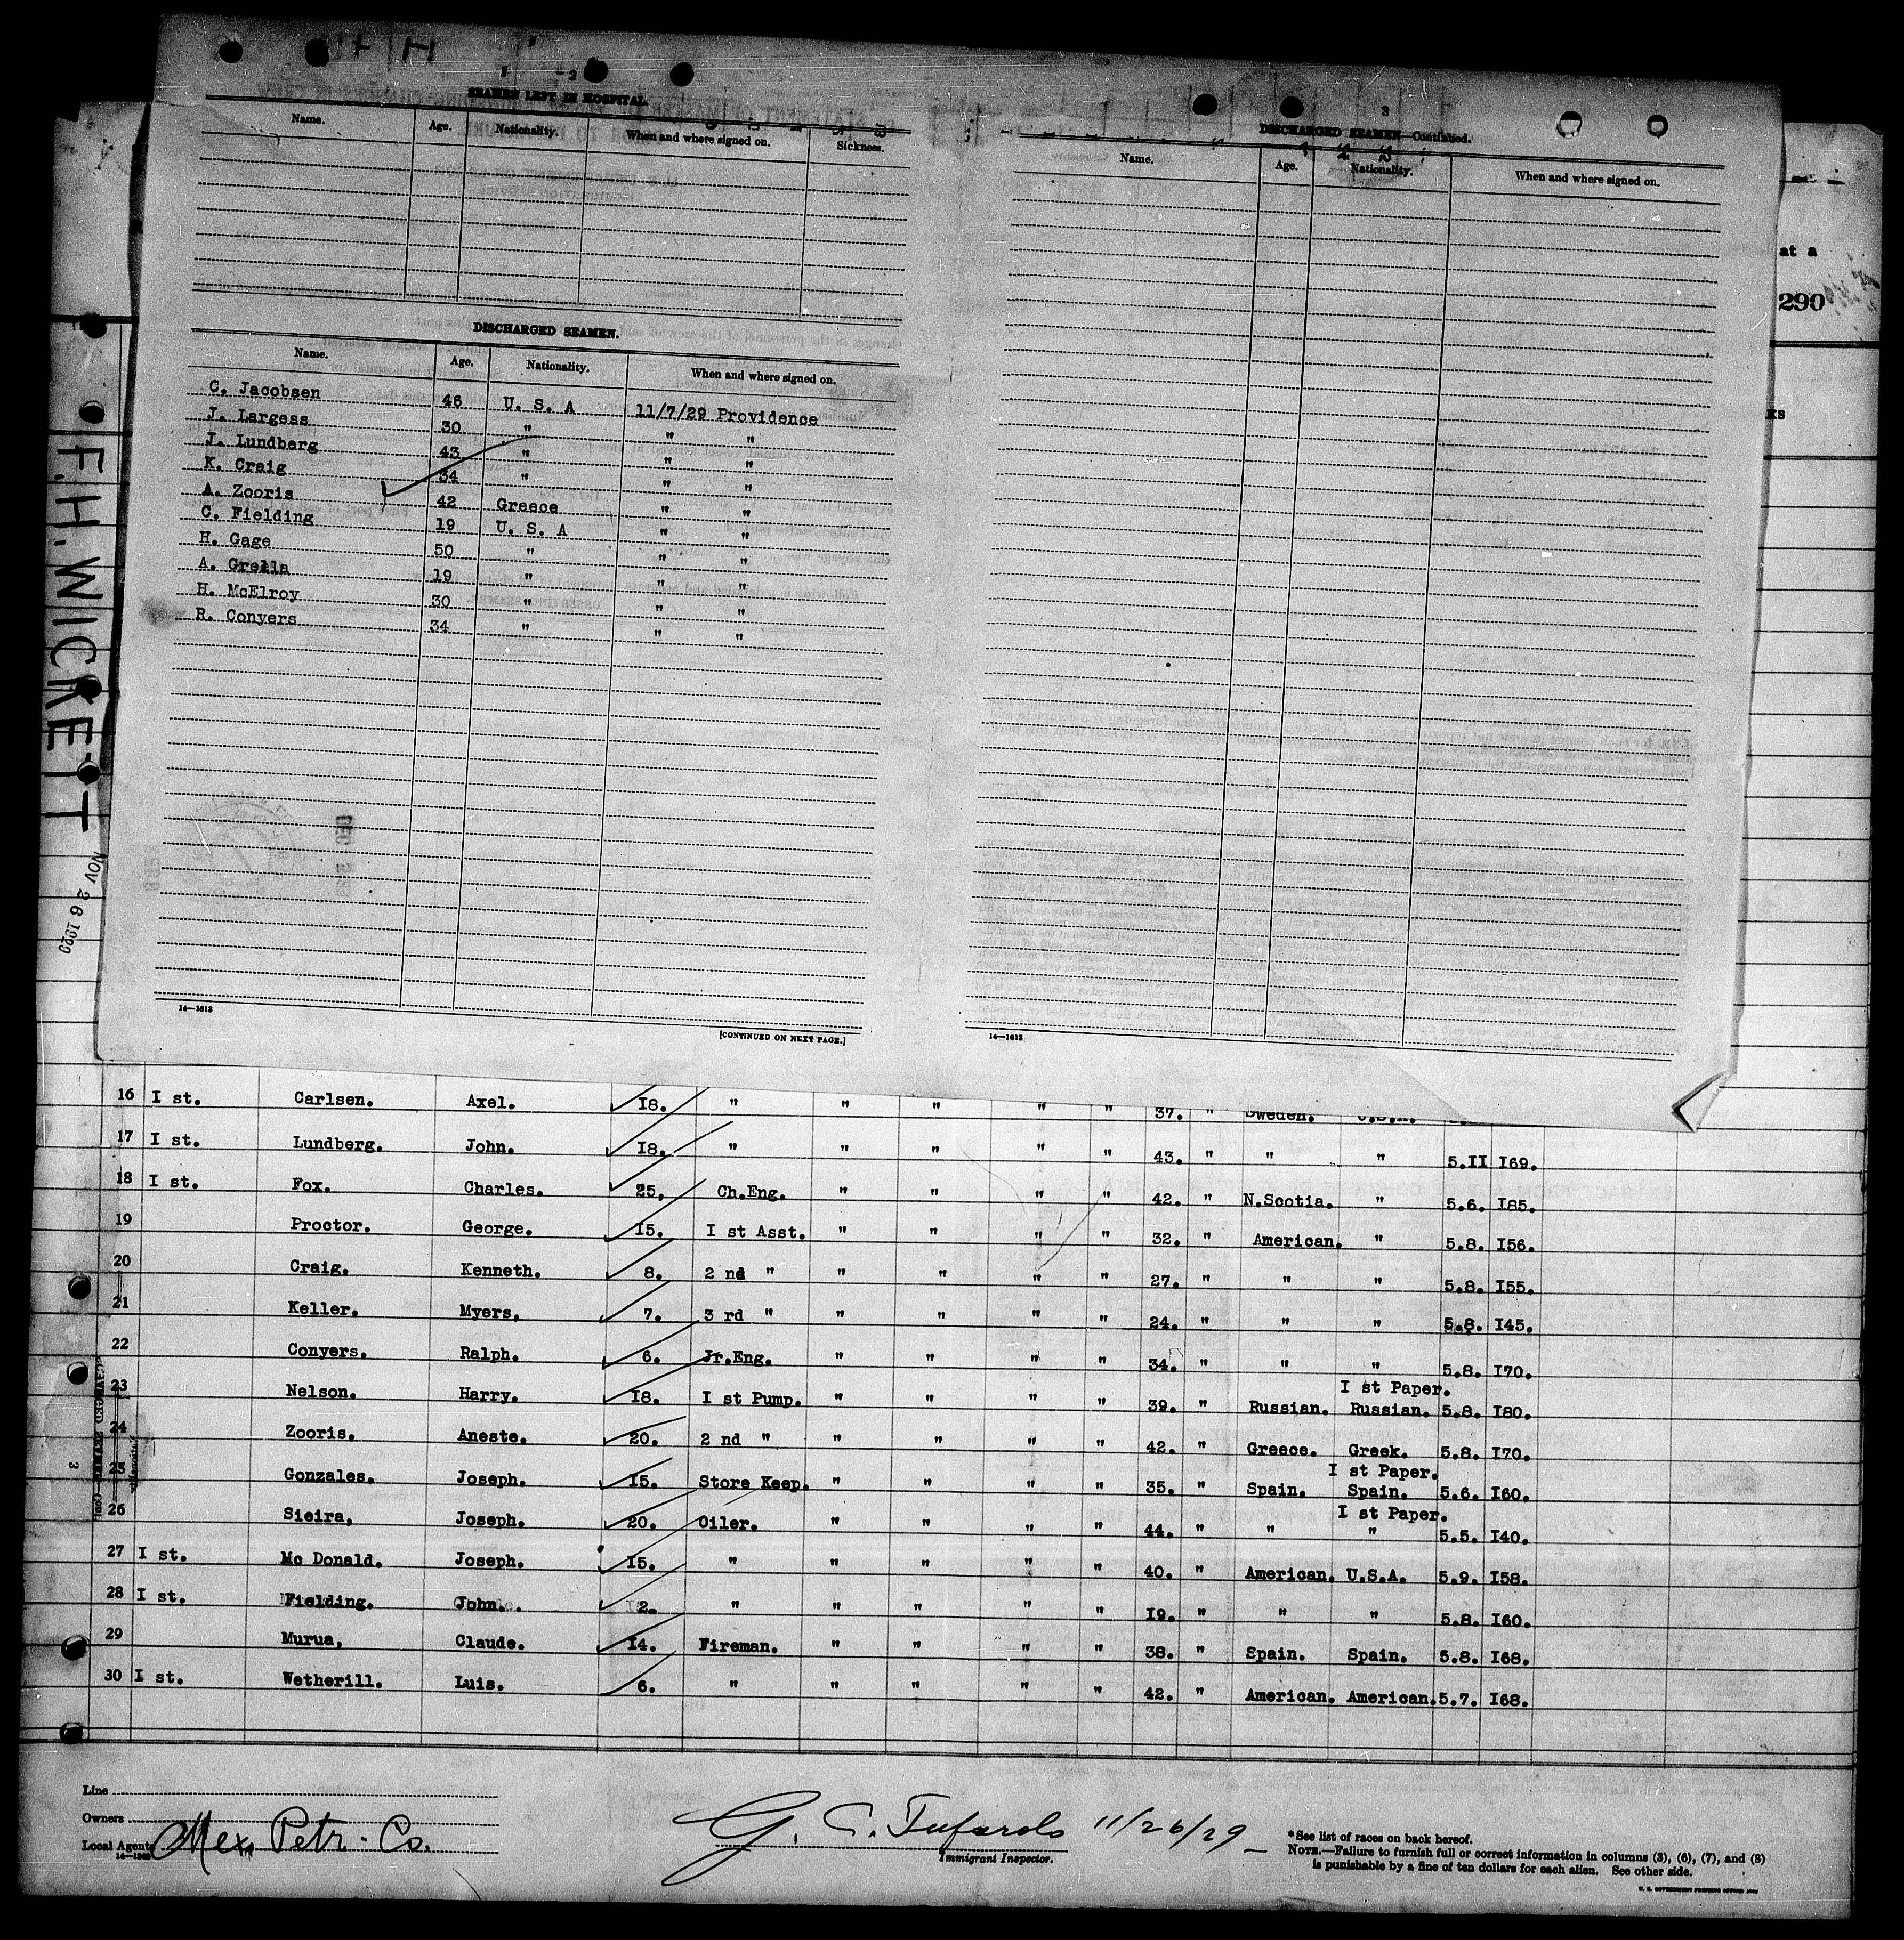 SEAMEN LEFT IN HOSPITAL.
Name. Age. Nationality. When and where signed on. Sickness.
DISCHARGED SEAMEN.
Name. Age. Nationality. When and where signed on.
C. Jacobsen 46 U. S. A 11/7/29 Providence
J. Largess 30 " " "
J. Lundberg 43 " " "
K. Craig 34 " " "
A. Zooris 42 Greece " "
C. Fielding 19 U. S. A " "
H. Gage 50 " " "
A. Grella 19 " " "
H. McElroy 30 " " "
R. Conyers 34 " " "
14—1613
[CONTINUED ON NEXT PAGE.]
3
DISCHARGED SEAMEN—Continued.
Name. Age. Nationality. When and where signed on.
14—1613
at a
290
ks
F.H. WICKETT
NOV 26 1929
16 I st. Carlsen. Axel. 18. " " " " " 37. " Sweden. U.S.A.
17 I st. Lundberg. John. 18. " " " " " 43. " " " 5.II I69.
18 I st. Fox. Charles. 25. Ch.Eng. " " " " 42. " N.Scotia. " 5.6. I85.
19 Proctor. George. 15. I st Asst. " " " " 32. " American. " 5.8. I56.
20 Craig. Kenneth. 8. 2 nd " " " " " 27. " " " 5.8. I55.
21 Keller. Myers. 7. 3 rd " " " " " 24. " " " 5.8. I45.
22 Conyers. Ralph. 6. Jr.Eng. " " " " 34. " " " 5.8. I70.
23 Nelson. Harry. 18. I st Pump. " " " " 39. " Russian. I st Paper. Russian. 5.8. I80.
24 Zooris. Aneste. 20. 2 nd " " " " " 42. " Greece. Greek. 5.8. I70.
25 Gonzales. Joseph. 15. Store Keep. " " " " 35. " Spain. I st Paper. Spain. 5.6. I60.
26 Sieira, Joseph. 20. Oiler. " " " " 44. " " I st Paper. " 5.5. I40.
27 I st. Mc Donald. Joseph. 15. " " " " " 40. " American. U.S.A. 5.9. I58.
28 I st. Fielding. John. 2. " " " " " 19. " " " 5.8. I60.
29 Murua, Claude. 14. Fireman. " " " " 38. " Spain. Spain. 5.8. I68.
30 I st. Wetherill. Luis. 6. " " " " " 42. " American. American. 5.7. I68.
Line
Owners
Local Agents Mex. Petr. Co.
G. C. Tufarolo 11/26/29
Immigrant Inspector.
*See list of races on back hereof.
NOTE.—Failure to furnish full or correct information in columns (3), (6), (7), and (8)
is punishable by a fine of ten dollars for each alien. See other side.